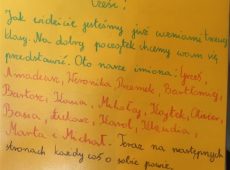 Cześć!
Jak widzicie jesteśmy już uczniami trzeciej
klasy. Na dobry początek chcemy wam się
przedstawić. Oto nasze imiona: Grześ,
Amadeusz, Weronika, Przemek, Bartłomiej,
Bartosz, Mikołaj, Wojtek, Oliwier,
Basia, Łukasz, Karol, Klaudia,
Marta i Michał. Teraz na następnych
stronach każdy coś o sobie powie.